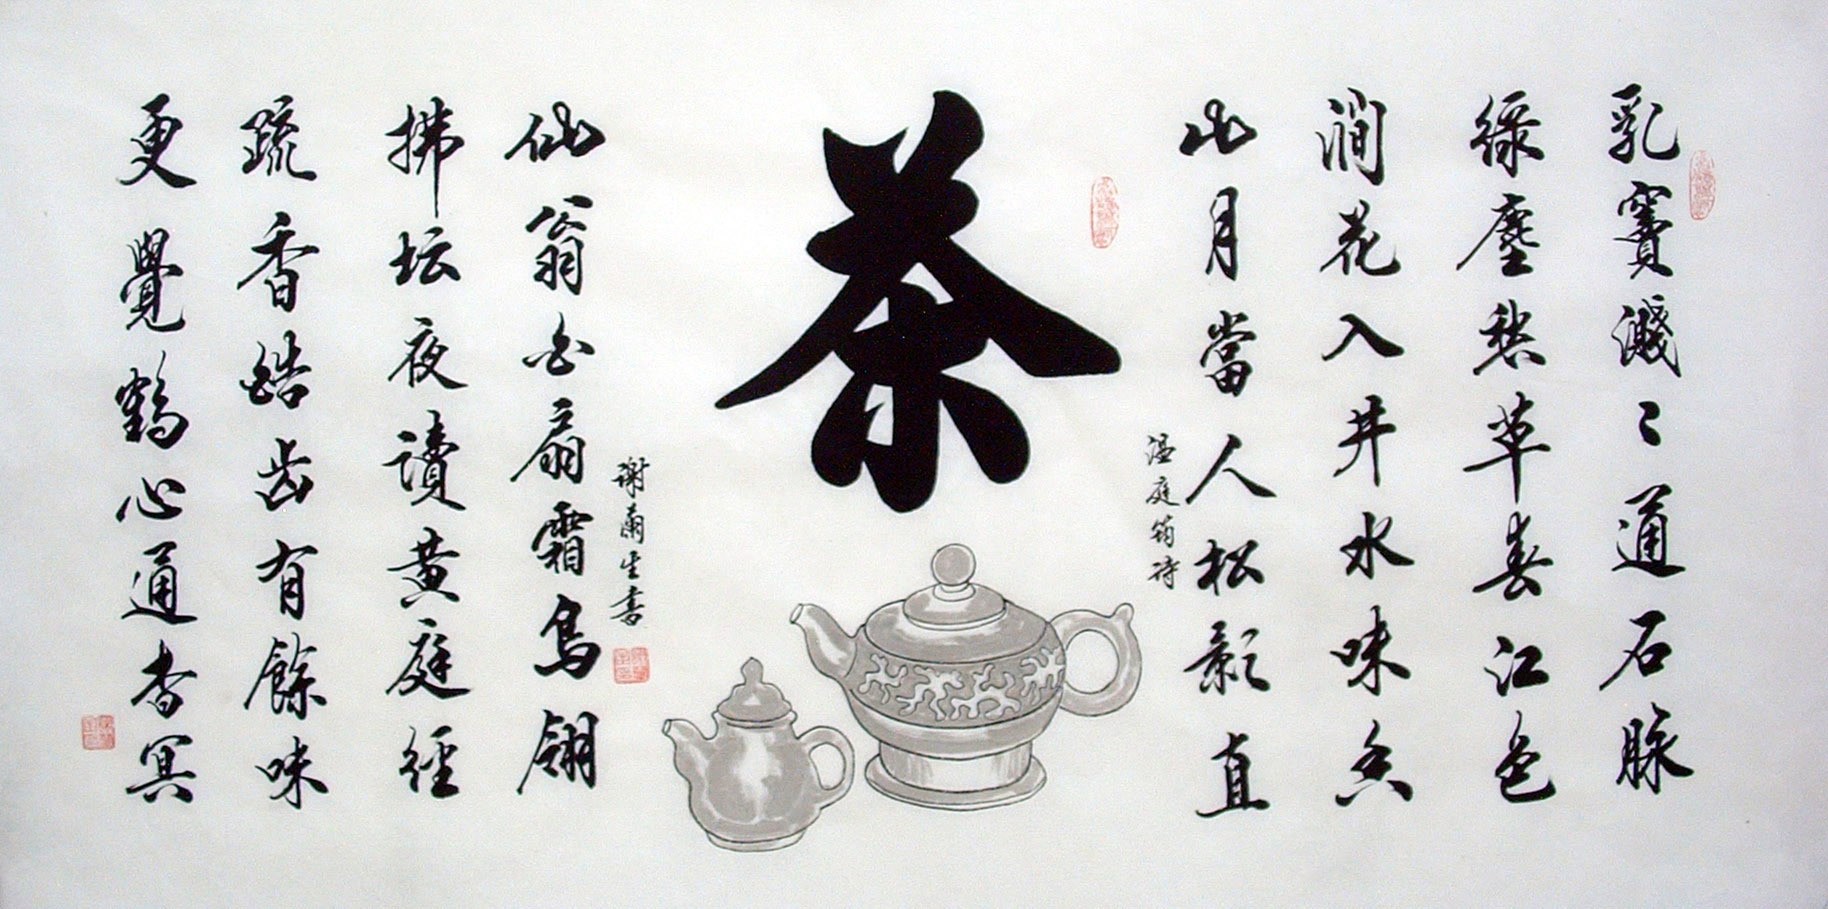 乳竇濺〻通石脉
綠塵愁草春江色
澗花入井水味香
山月當人松影直
温庭筠诗
茶
仙翁白扇霜鳥翎
拂坛夜讀黄庭經
疏香皓齿有餘味
更覺鶴心通杳冥
谢爾生書